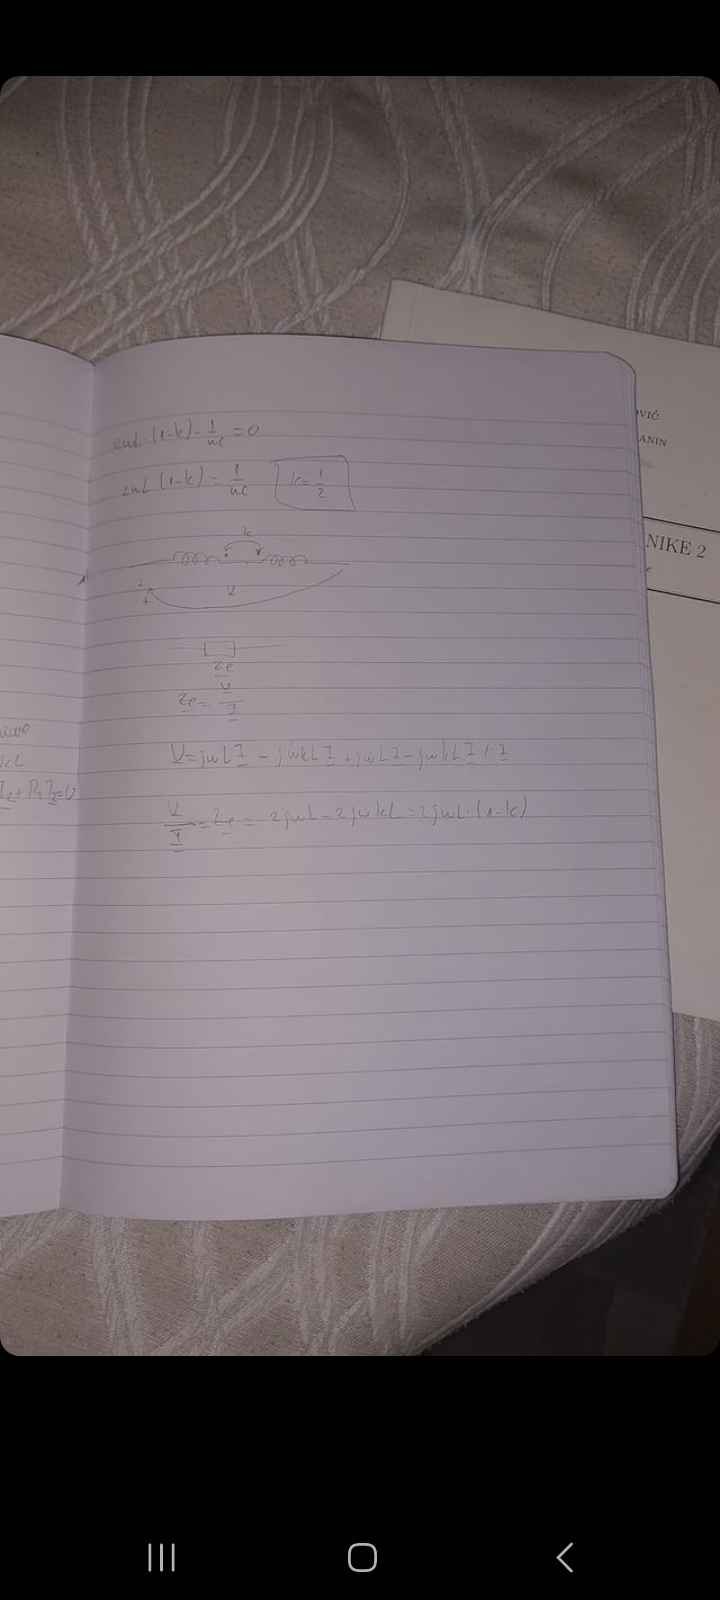 2ωL (1-k) - 1/ωC = 0
2ωL (1-k) = 1/ωC k = 1/2
k
+ U
Ze
Ze = U/I
U = jωL I - jωkL I + jωL I - jωkL I /: I
U/I = Ze = 2jωL - 2jωkL = 2jωL·(1-k)
kL
I2 + R I =0
OVIĆ
ANIN
NIKE 2